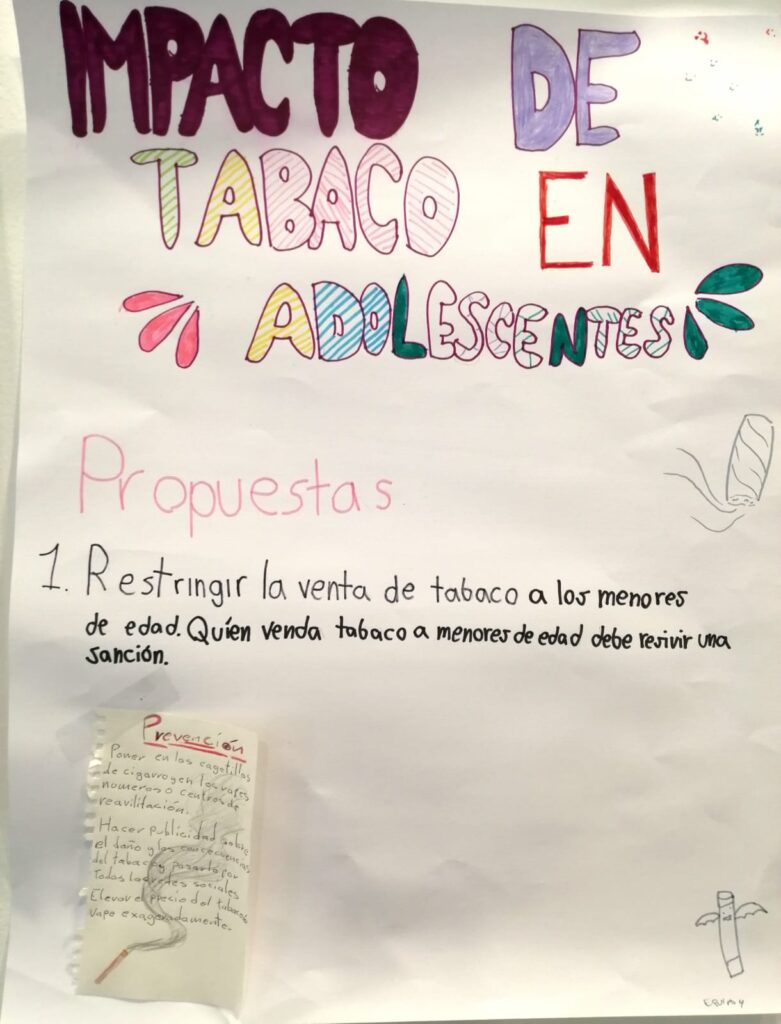 IMPACTO DE
TABACO EN
ADOLESCENTES
Propuestas
1. Restringir la venta de tabaco a los menores
de edad. Quien venda tabaco a menores de edad debe resivir una
sanción.
Prevención
Poner en las cagetillas
de cigarro y en los vapes
numeros o centros de
reavilitación.
Hacer publicidad sobre
el daño y las concecuencias
del tabaco y pasarlo por
todas las redes sociales
Elevar el precio del tabaco
vape exageradamente.
EQUIPO 4